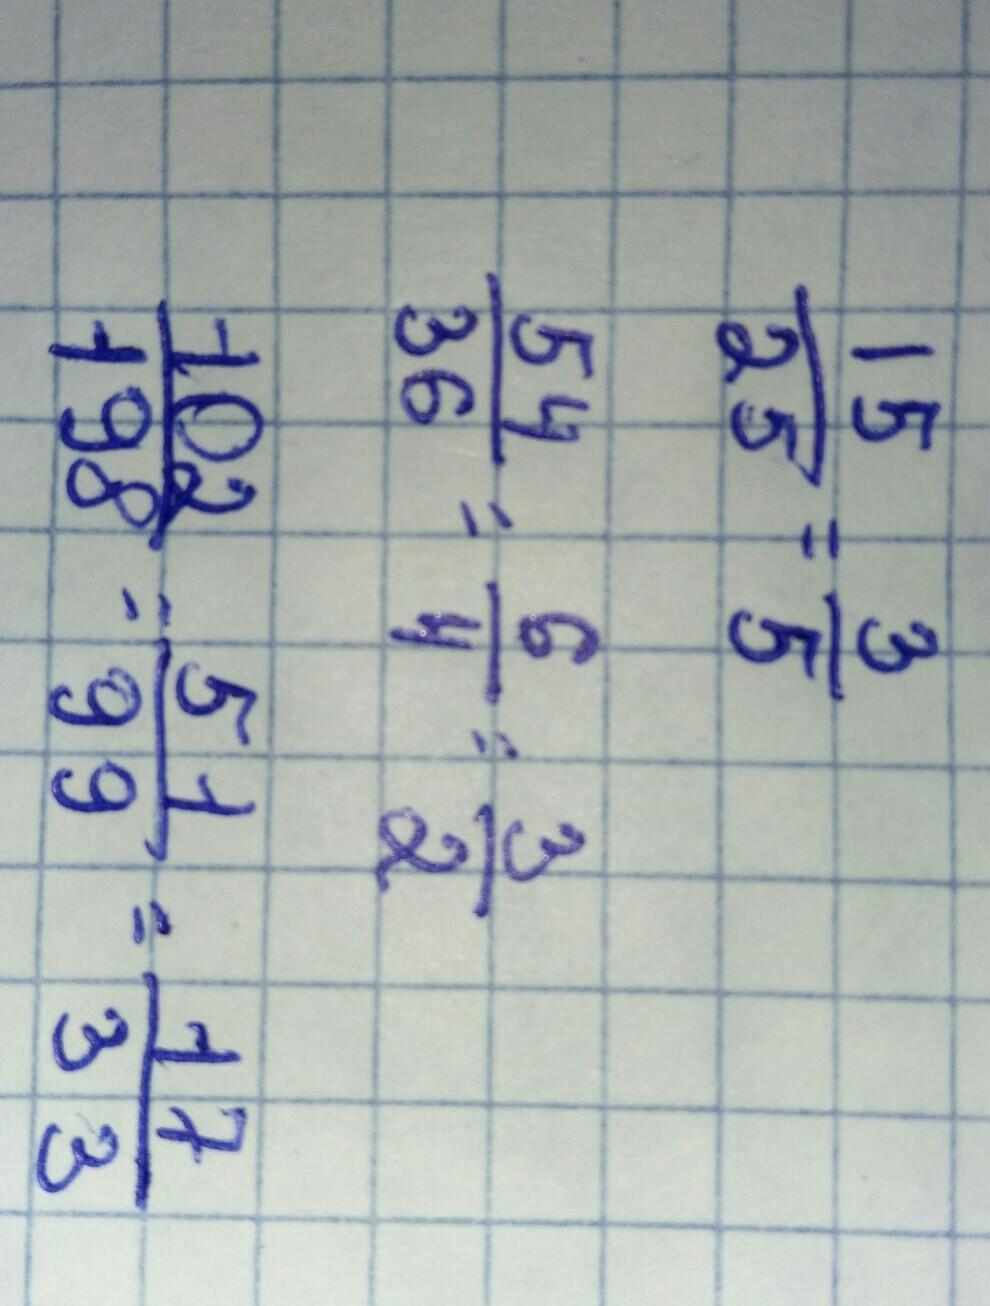 15/25 = 3/5
54/36 = 6/4 = 3/2
102/198 = 51/99 = 17/33